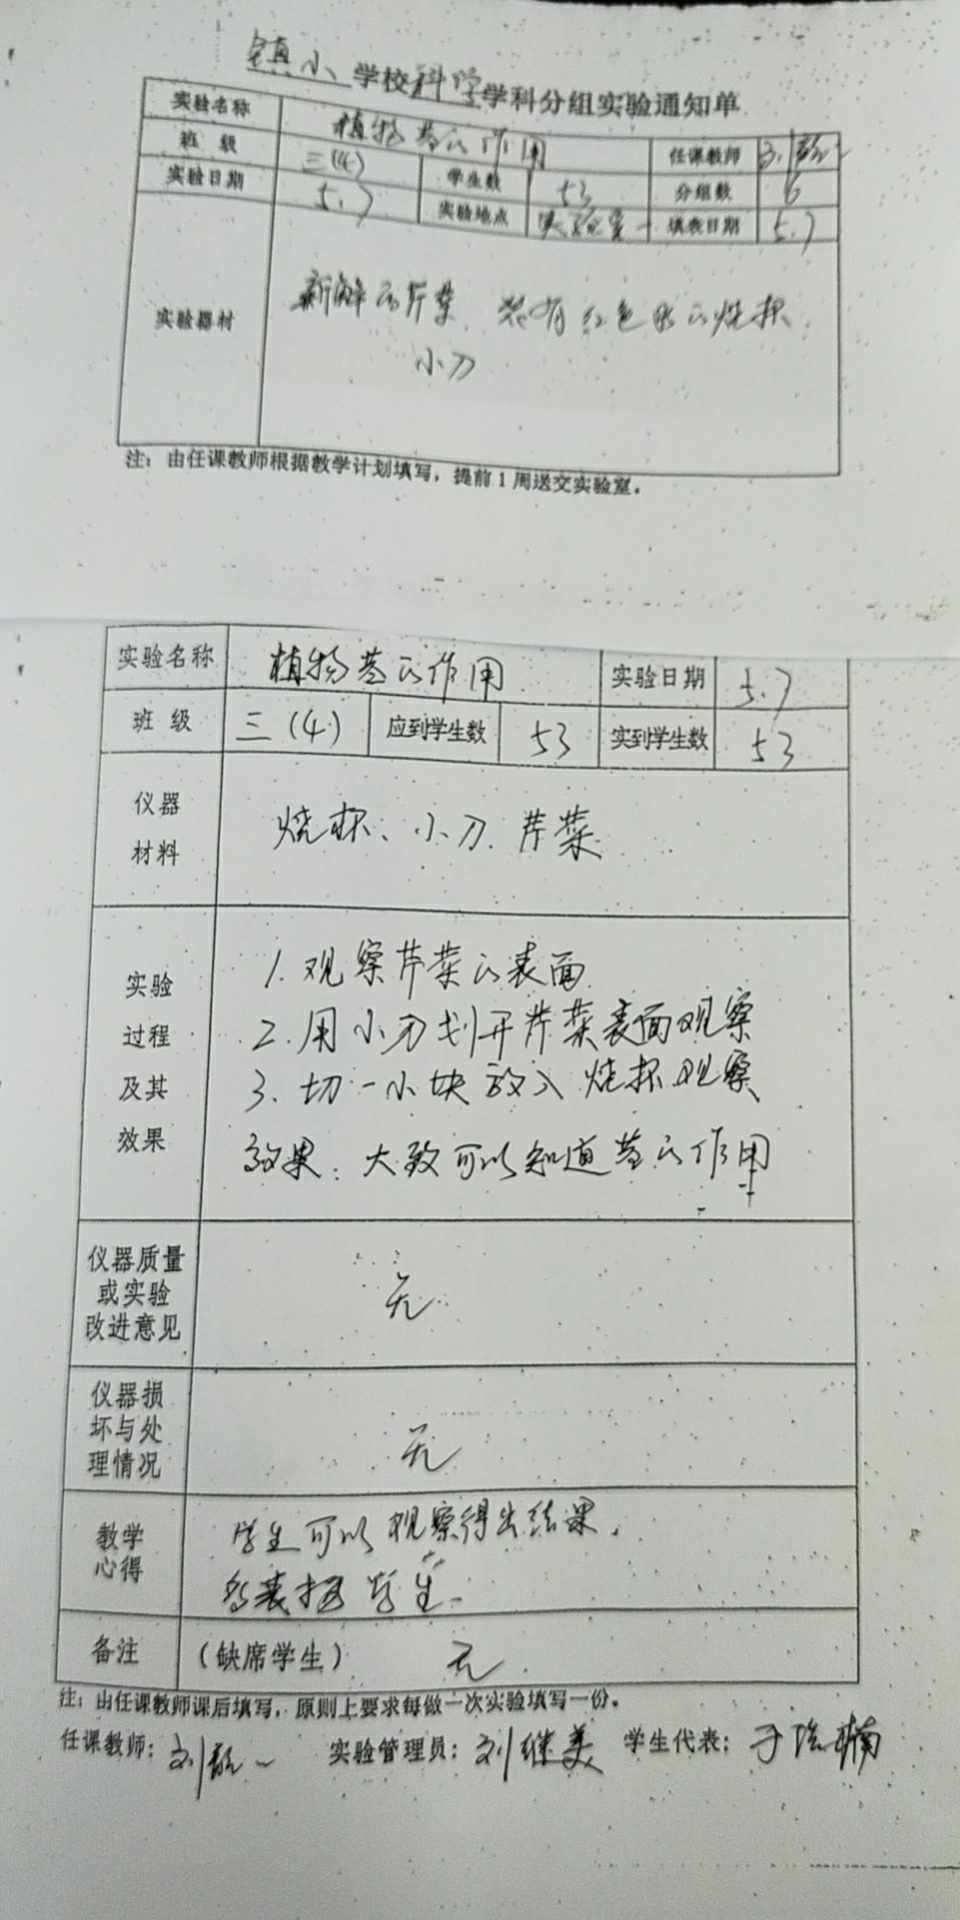 镇小学校科学学科分组实验通知单
实验名称 植物茎的作用 任课教师
班 级 三(4) 学生数 53 分组数 6
实验日期 5.7 实验地点 实验室一 填表日期 5.7
实验器材 新鲜的芹菜、装有红色水的烧杯、
小刀
注：由任课教师根据教学计划填写，提前1周送交实验室。
实验名称 植物茎的作用 实验日期 5.7
班 级 三(4) 应到学生数 53 实到学生数 53
仪器
材料
烧杯、小刀、芹菜
实验
过程
及其
效果
1.观察芹菜的表面
2.用小刀划开芹菜表面观察
3.切一小块放入烧杯观察
效果：大致可以知道茎的作用
仪器质量
或实验
改进意见
无
仪器损
坏与处
理情况
无
教学
心得
学生可以观察得出结果，
学生
备注 (缺席学生) 无
注：由任课教师课后填写，原则上要求每做一次实验填写一份。
任课教师： 刘 实验管理员：刘继美 学生代表：于 楠